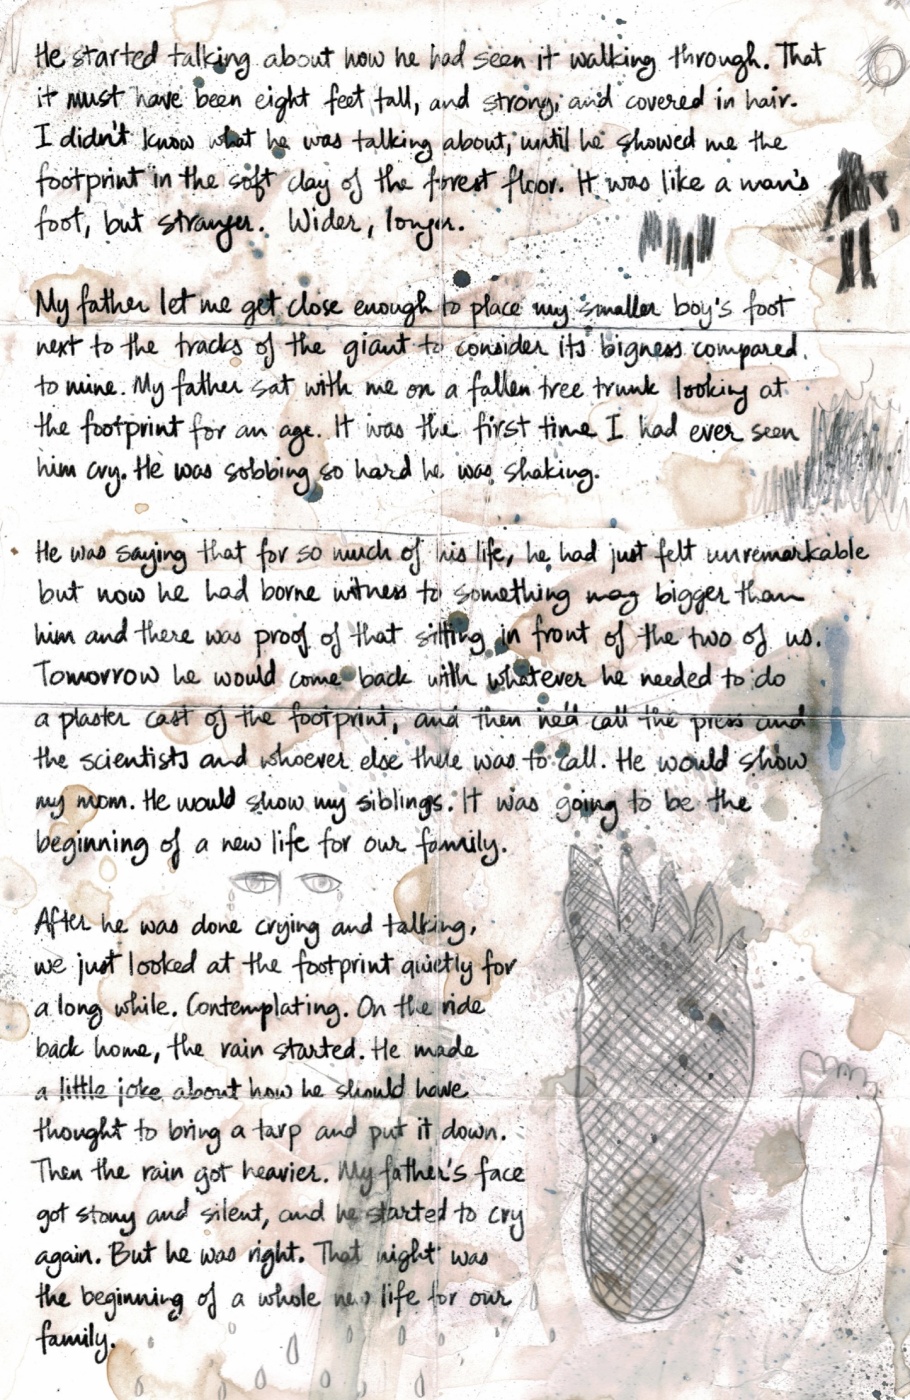 He started talking about how he had seen it walking through. That
it must have been eight feet tall, and strong, and covered in hair.
I didn't know what he was talking about, until he showed me the
footprint in the soft clay of the forest floor. It was like a man's
foot, but stranger. Wider, longer.
My father let me get close enough to place my smaller boy's foot
next to the tracks of the giant to consider its bigness compared
to mine. My father sat with me on a fallen tree trunk looking at
the footprint for an age. It was the first time I had ever seen
him cry. He was sobbing so hard he was shaking.
He was saying that for so much of his life, he had just felt unremarkable
but now he had borne witness to something way bigger than
him and there was proof of that sitting in front of the two of us.
Tomorrow he would come back with whatever he needed to do
a plaster cast of the footprint, and then he'd call the press and
the scientists and whoever else there was to call. He would show
my mom. He would show my siblings. It was going to be the
beginning of a new life for our family.
After he was done crying and talking,
we just looked at the footprint quietly for
a long while. Contemplating. On the ride
back home, the rain started. He made
a little joke about how he should have
thought to bring a tarp and put it down.
Then the rain got heavier. My father's face
got stony and silent, and he started to cry
again. But he was right. That night was
the beginning of a whole new life for our
family.